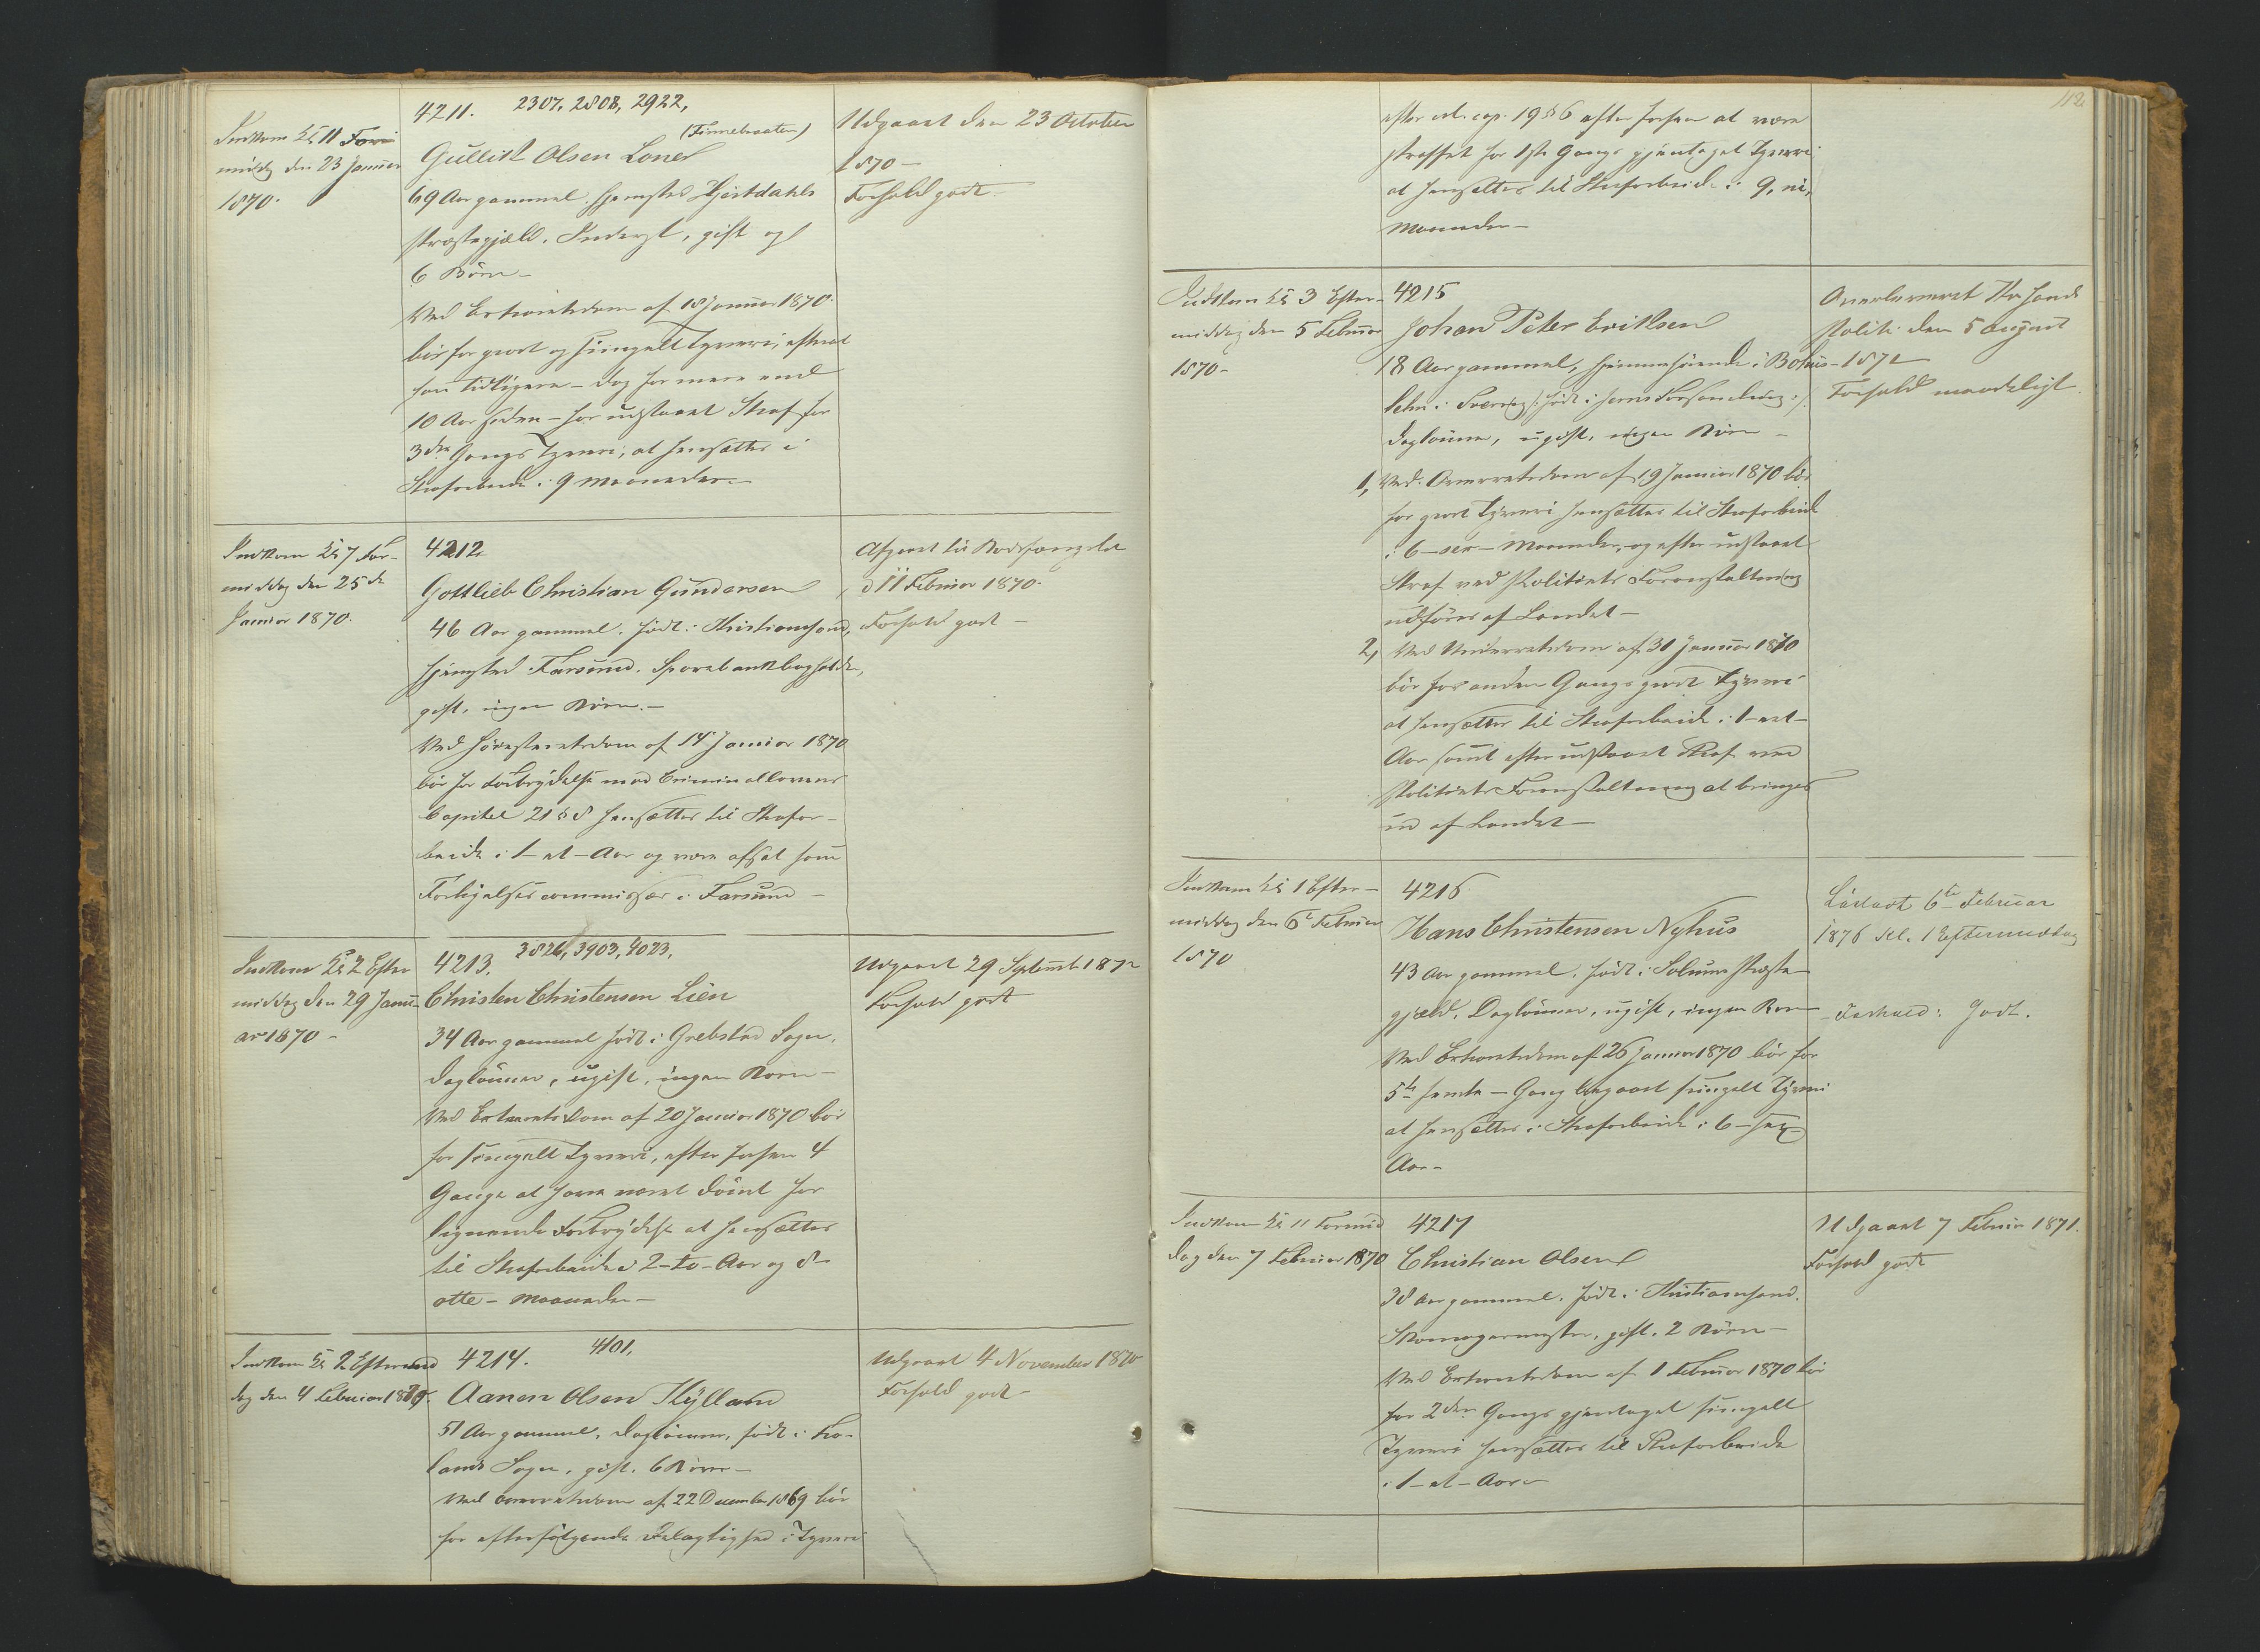 Indkom Kl 11 Formiddag den 23 Januar
1870.
4211. 2307, 2808, 2922,
(Finnebraaten)
Gullik Olsen Loner
69 Aar gammel. Hjemsted Hjertdahls
Præstegjæld. Inderst, gift og
6 Børn –
Ved Extraretsdom af 18 Januar 1870
bør for grovt og simpelt Tyveri, efterat
han tidligere – dog for mere end
10 Aar siden – har udstaaet Straf for
3die Gangs Tyveri, at hensættes i
Strafarbeide i 9 Maaneder. –
Udgaaet den 23 October
1870 –
Forhold godt.
Indkom Kl 7 For-
middag den 25de
Januar 1870.
4212
Gottlieb Christian Gundersen
46 Aar gammel. født i Kristiansand,
hjemsted Farsund. Sparebankbogholder,
gift, ingen Børn. –
Ved Høiesteretsdom af 14 Januar 1870
bør for Forbrydelse mod Criminallovens
Capitel 21 § 8 hensættes til Strafar-
beide i 1 – et – Aar og være afsat som
Forligelsescommissær i Farsund –
Afgaaet til Bodsfængslet
d 11 Februar 1870.
Forhold godt –
Indkom Kl 2 Efter
middag den 29 Janu-
ar 1870 –
4213. 3826, 3903, 4023,
Christen Christensen Lien
34 Aar gammel født i Grebstad Sogn,
Dagløнner, ugift, ingen Børn –
Ved Extraretsdom af 20 Januar 1870 bør
for simpelt Tyveri, efter forhen 4
Gange at have været dømt for
lignende Forbrydelse at hensættes
til Strafarbeide i 2 – to – Aar og 8 –
otte – Maaneder –
Udgaaet 29 September 1872
Forhold godt
Indkom Kl 2 Eftermid
dag den 4 Februar 1870.
4214. 4101,
Aanen Olsen Kylland
51 Aar gammel, Dagløнner, født i
lands Sogn, gift, 6 Børn –
Ved Overretsdom af 22 December 1869 bør
for efterfølgende Delagtighed i Tyveri
Udgaaet 4 November 1870
Forhold godt –
112
efter cap. 19 § 6 efter forhen at være
straffet for 1ste Gangs gjentaget Tyveri
at hensættes til Strafarbeide i 9, ni,
Maaneder –
Indkom Kl 3 Efter-
middag den 5 Februar
1870 –
4215
Johan Peter Eriksen
18 Aar gammel, hjemmehørende i Bohus-
lehn i Sverrig
Dagløнner, ugift, ingen Børn –
1, Ved Overretsdom af 19 Januar 1870 bør
for grovt Tyveri hensættes til Strafarbeide
i 6 – sex – Maaneder, og efter udstaaet
Straf ved Politiets Foranstaltning
udføres af Landet –
2, Ved Underretsdom af 31 Januar 1870
bør for anden Gangs grovt Tyveri
at hensættes til Strafarbeide i 1 – et –
Aar samt efter udstaaet Straf ved
Politiets Foranstaltning at bringes
ud af Landet –
Overleveret Kr.sands
Politi den 5 August
1871
Forhold maadeligt.
Indkom Kl 1 Efter-
middag den 6te Februar
1870
4216
Hans Christensen Nyhus
43 Aar gammel. født i Solums Præste
gjæld, Dagløнner, ugift, ingen Børn
Ved Extraretsdom af 26 Januar 1870 bør for
5te femte – Gang begaaet simpelt Tyveri
at hensættes i Strafarbeide i 6 – sex –
Aar –
Løsladt 6te Februar
1876 Kl. 1 Eftermiddag
Forhold: Godt.
Indkom Kl 11 Formid
dag den 7 Februar 1870
4217
Christian Olsen
38 Aar gammel. født i Kristiansand.
Skomagermester, gift. 2 Børn –
Ved Extraretsdom af 1 Februar 1870 bør
for 2den Gangs gjentaget simpelt
Tyveri hensættes til Strafarbeide
i 1 – et – Aar –
Udgaaet 7 Februar 1871.
Forhold godt